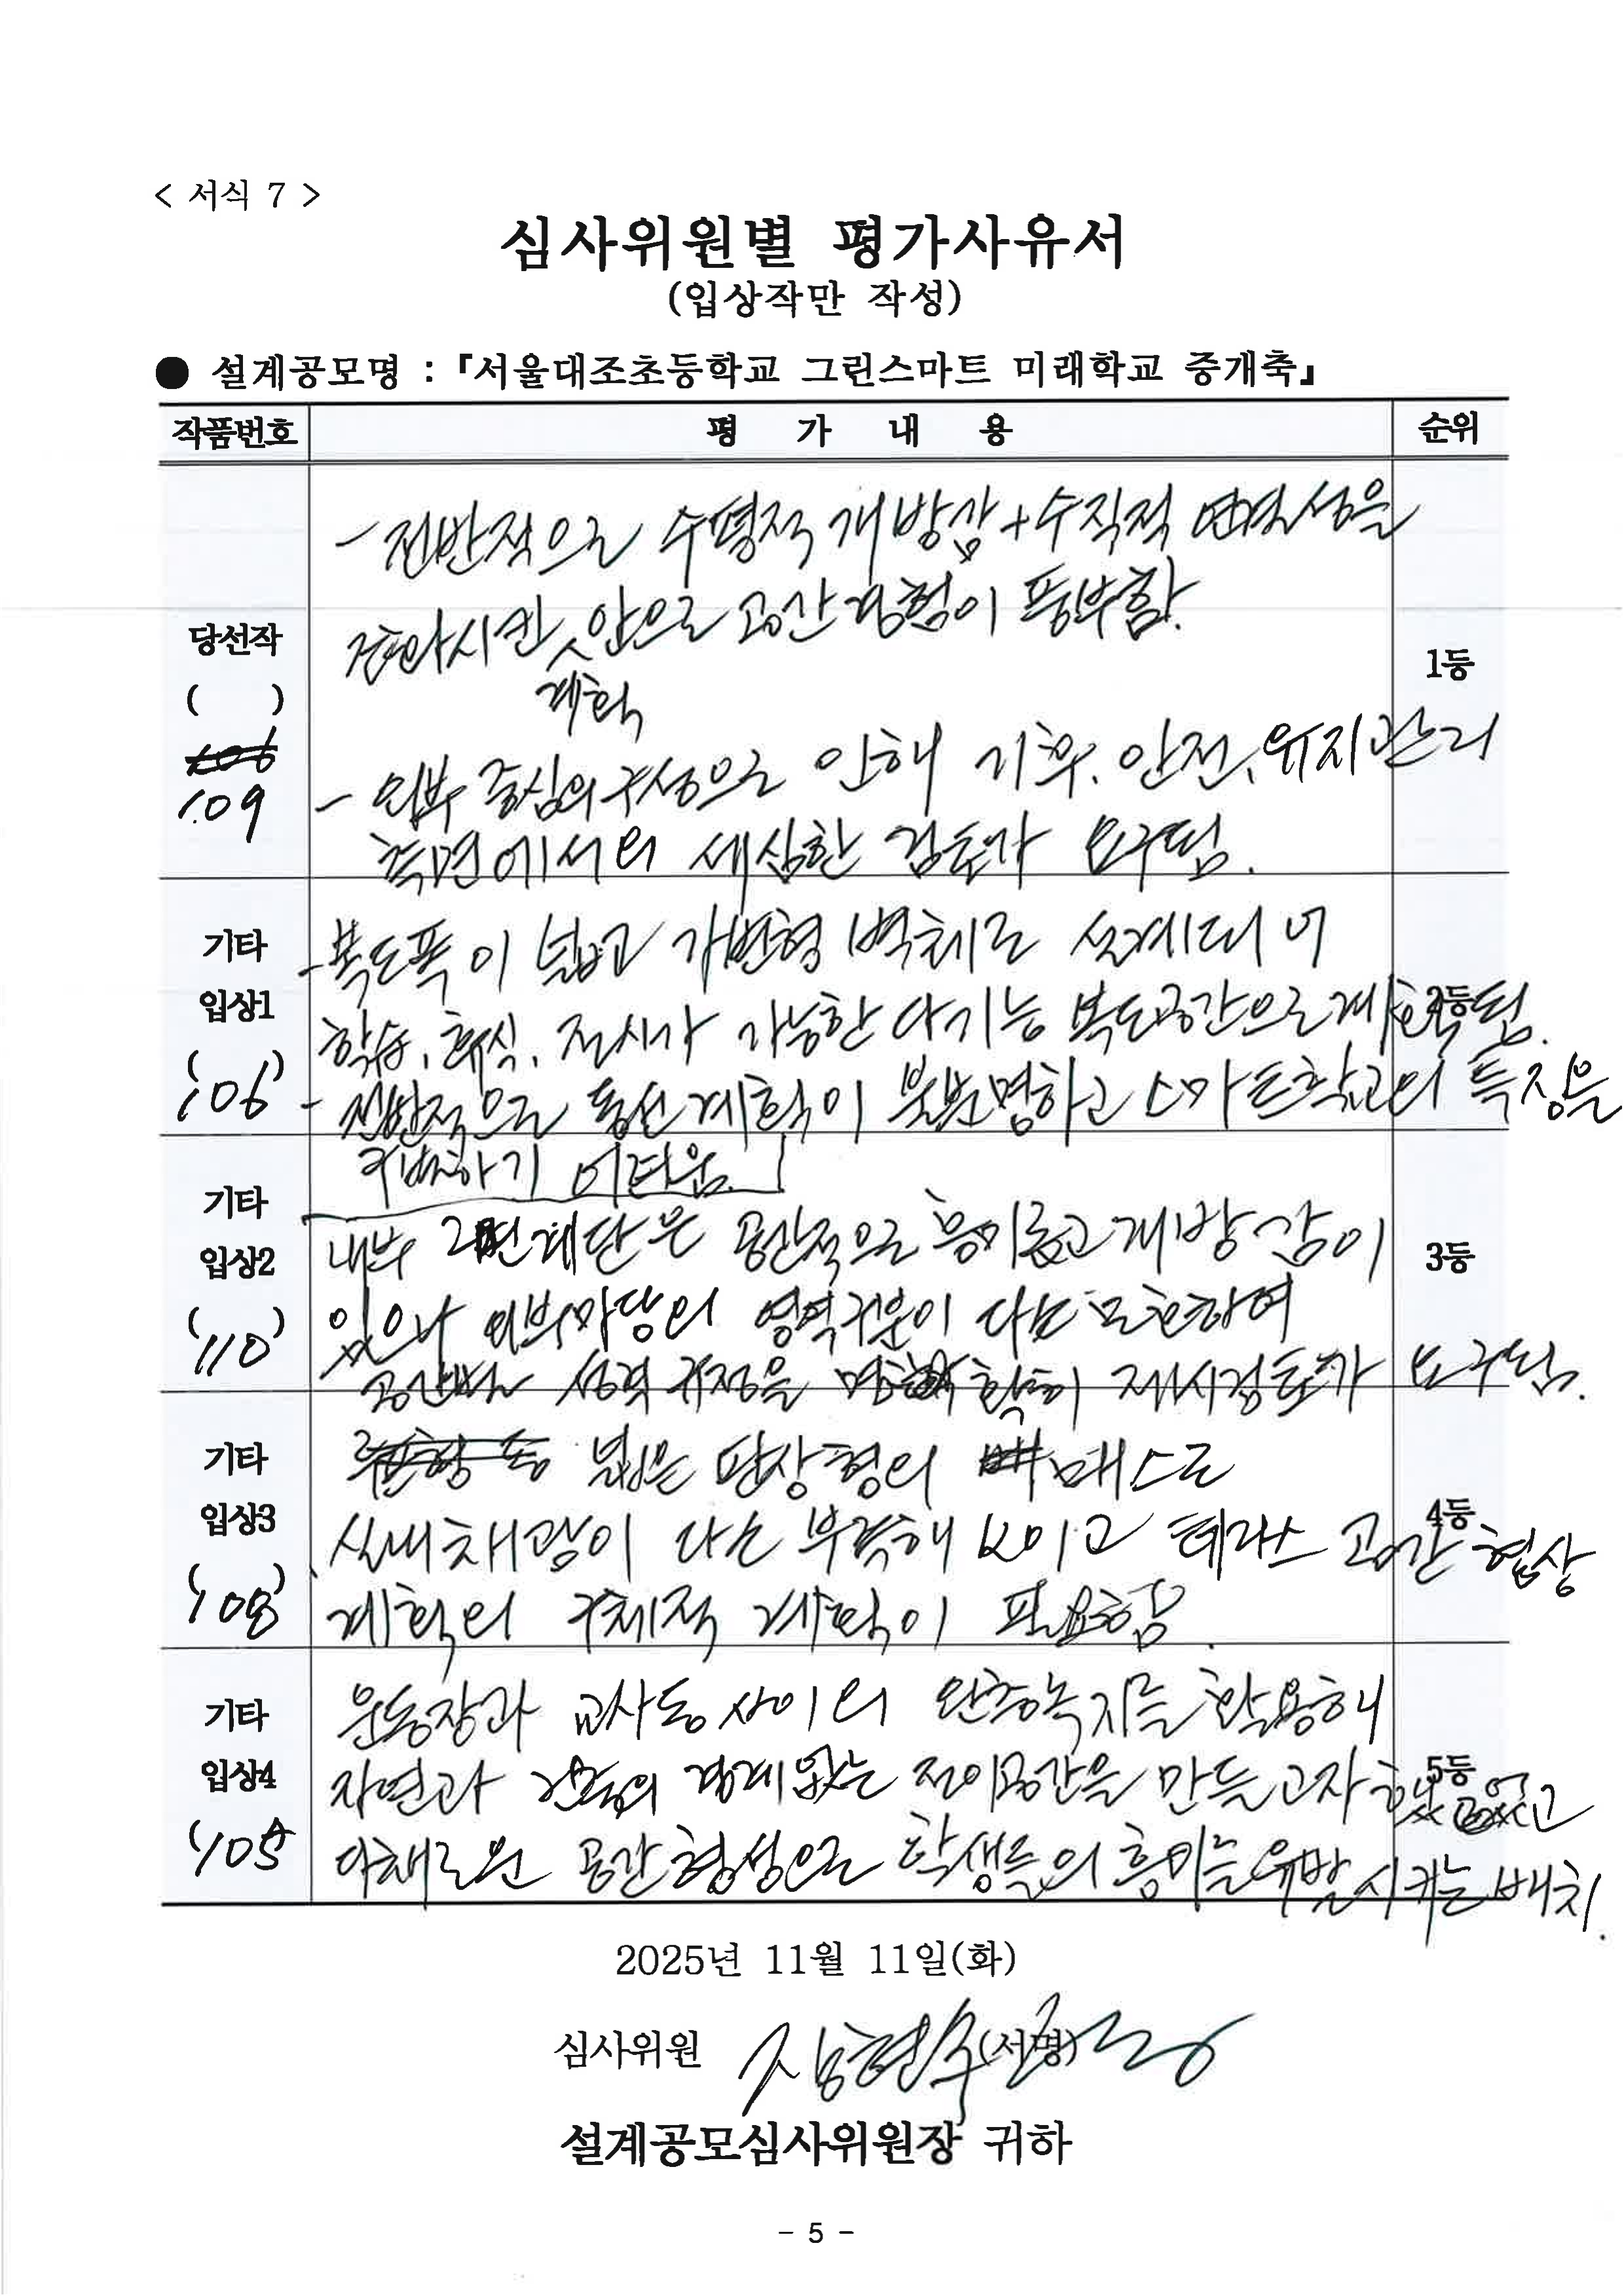 < 서식 7 >
심사위원별 평가사유서
(입상작만 작성)
● 설계공모명 : 『서울대조초등학교 그린스마트 미래학교 증개축』
작품번호 평 가 내 용 순위
당선작
( )
109
- 전반적으로 수평적 개방감+수직적 연결성을
강화시킨 계획안으로 공간경험이 풍부함.
- 외부 중심의 구성으로 인해 기후, 안전, 유지관리
측면에서의 세심한 검토가 요구됨.
1등
기타
입상1
(106)
- 복도폭이 넓고 가변형 벽체로 설계되어
학습, 휴식, 전시가 가능한 다기능 복도공간으로 계획됨.
- 전반적으로 동선계획이 불분명하고 스마트학교의 특징을
어려움.
2등
기타
입상2
(110)
내부 계단은 공간적으로 흥미롭고 개방감이
있으나 외부마당의 영역구분이 다소 모호하여
공간별 성격규정을 명확히 재시검토가 요구됨.
3등
기타
입상3
(108)
넓은 판상형의 매스로
실내채광이 다소 부족해 보이고 테라스 공간 협상
계획의 구체적 계획이 필요함.
4등
기타
입상4
(105)
운동장과 교사동 사이의 완충녹지를 활용해
자연과 건축의 경계없는 전이공간을 만들고자 하였고
다채로운 공간형성으로 학생들의 흥미를 유발시키는 배치.
5등
2025년 11월 11일(화)
심사위원 심현수 (서명)
설계공모심사위원장 귀하
- 5 -